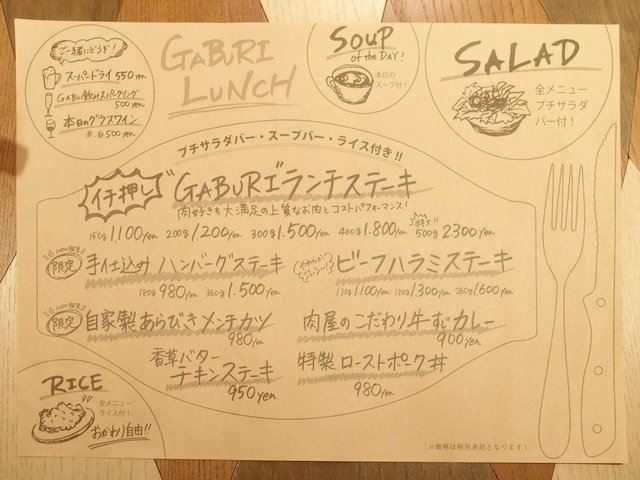 ご一緒にどうぞ!
スーパードライ 550yen
GABU飲みスパークリング
500yen
本日のグラスワイン
赤、白 500yen
GABURI
LUNCH
SOUP
of the DAY!
本日の
スープ付!
SALAD
全メニュー
プチサラダ
バー付!
プチサラダバー・スープバー・ライス付き!!
イチ押し
GABURI ランチステーキ
肉好きも大満足の上質なお肉とコストパフォーマンス!
150g 1.100yen 200g 1.200yen 300g 1.500yen 400g 1.800yen 特大!! 500g 2.300yen
限定
手仕込み ハンバーグステーキ
180g 980yen 360g 1.500yen
やわらか
ジューシー!
ビーフハラミステーキ
130g 1.100yen 180g 1.300yen 260g 1.600yen
限定
自家製あらびきメンチカツ
980yen
肉屋のこだわり牛すじカレー
900yen
香草バター
チキンステーキ
950yen
特製ローストポーク丼
980yen
RICE
全メニュー
ライス付!
おかわり自由!!
[※価格は税別表記となります]